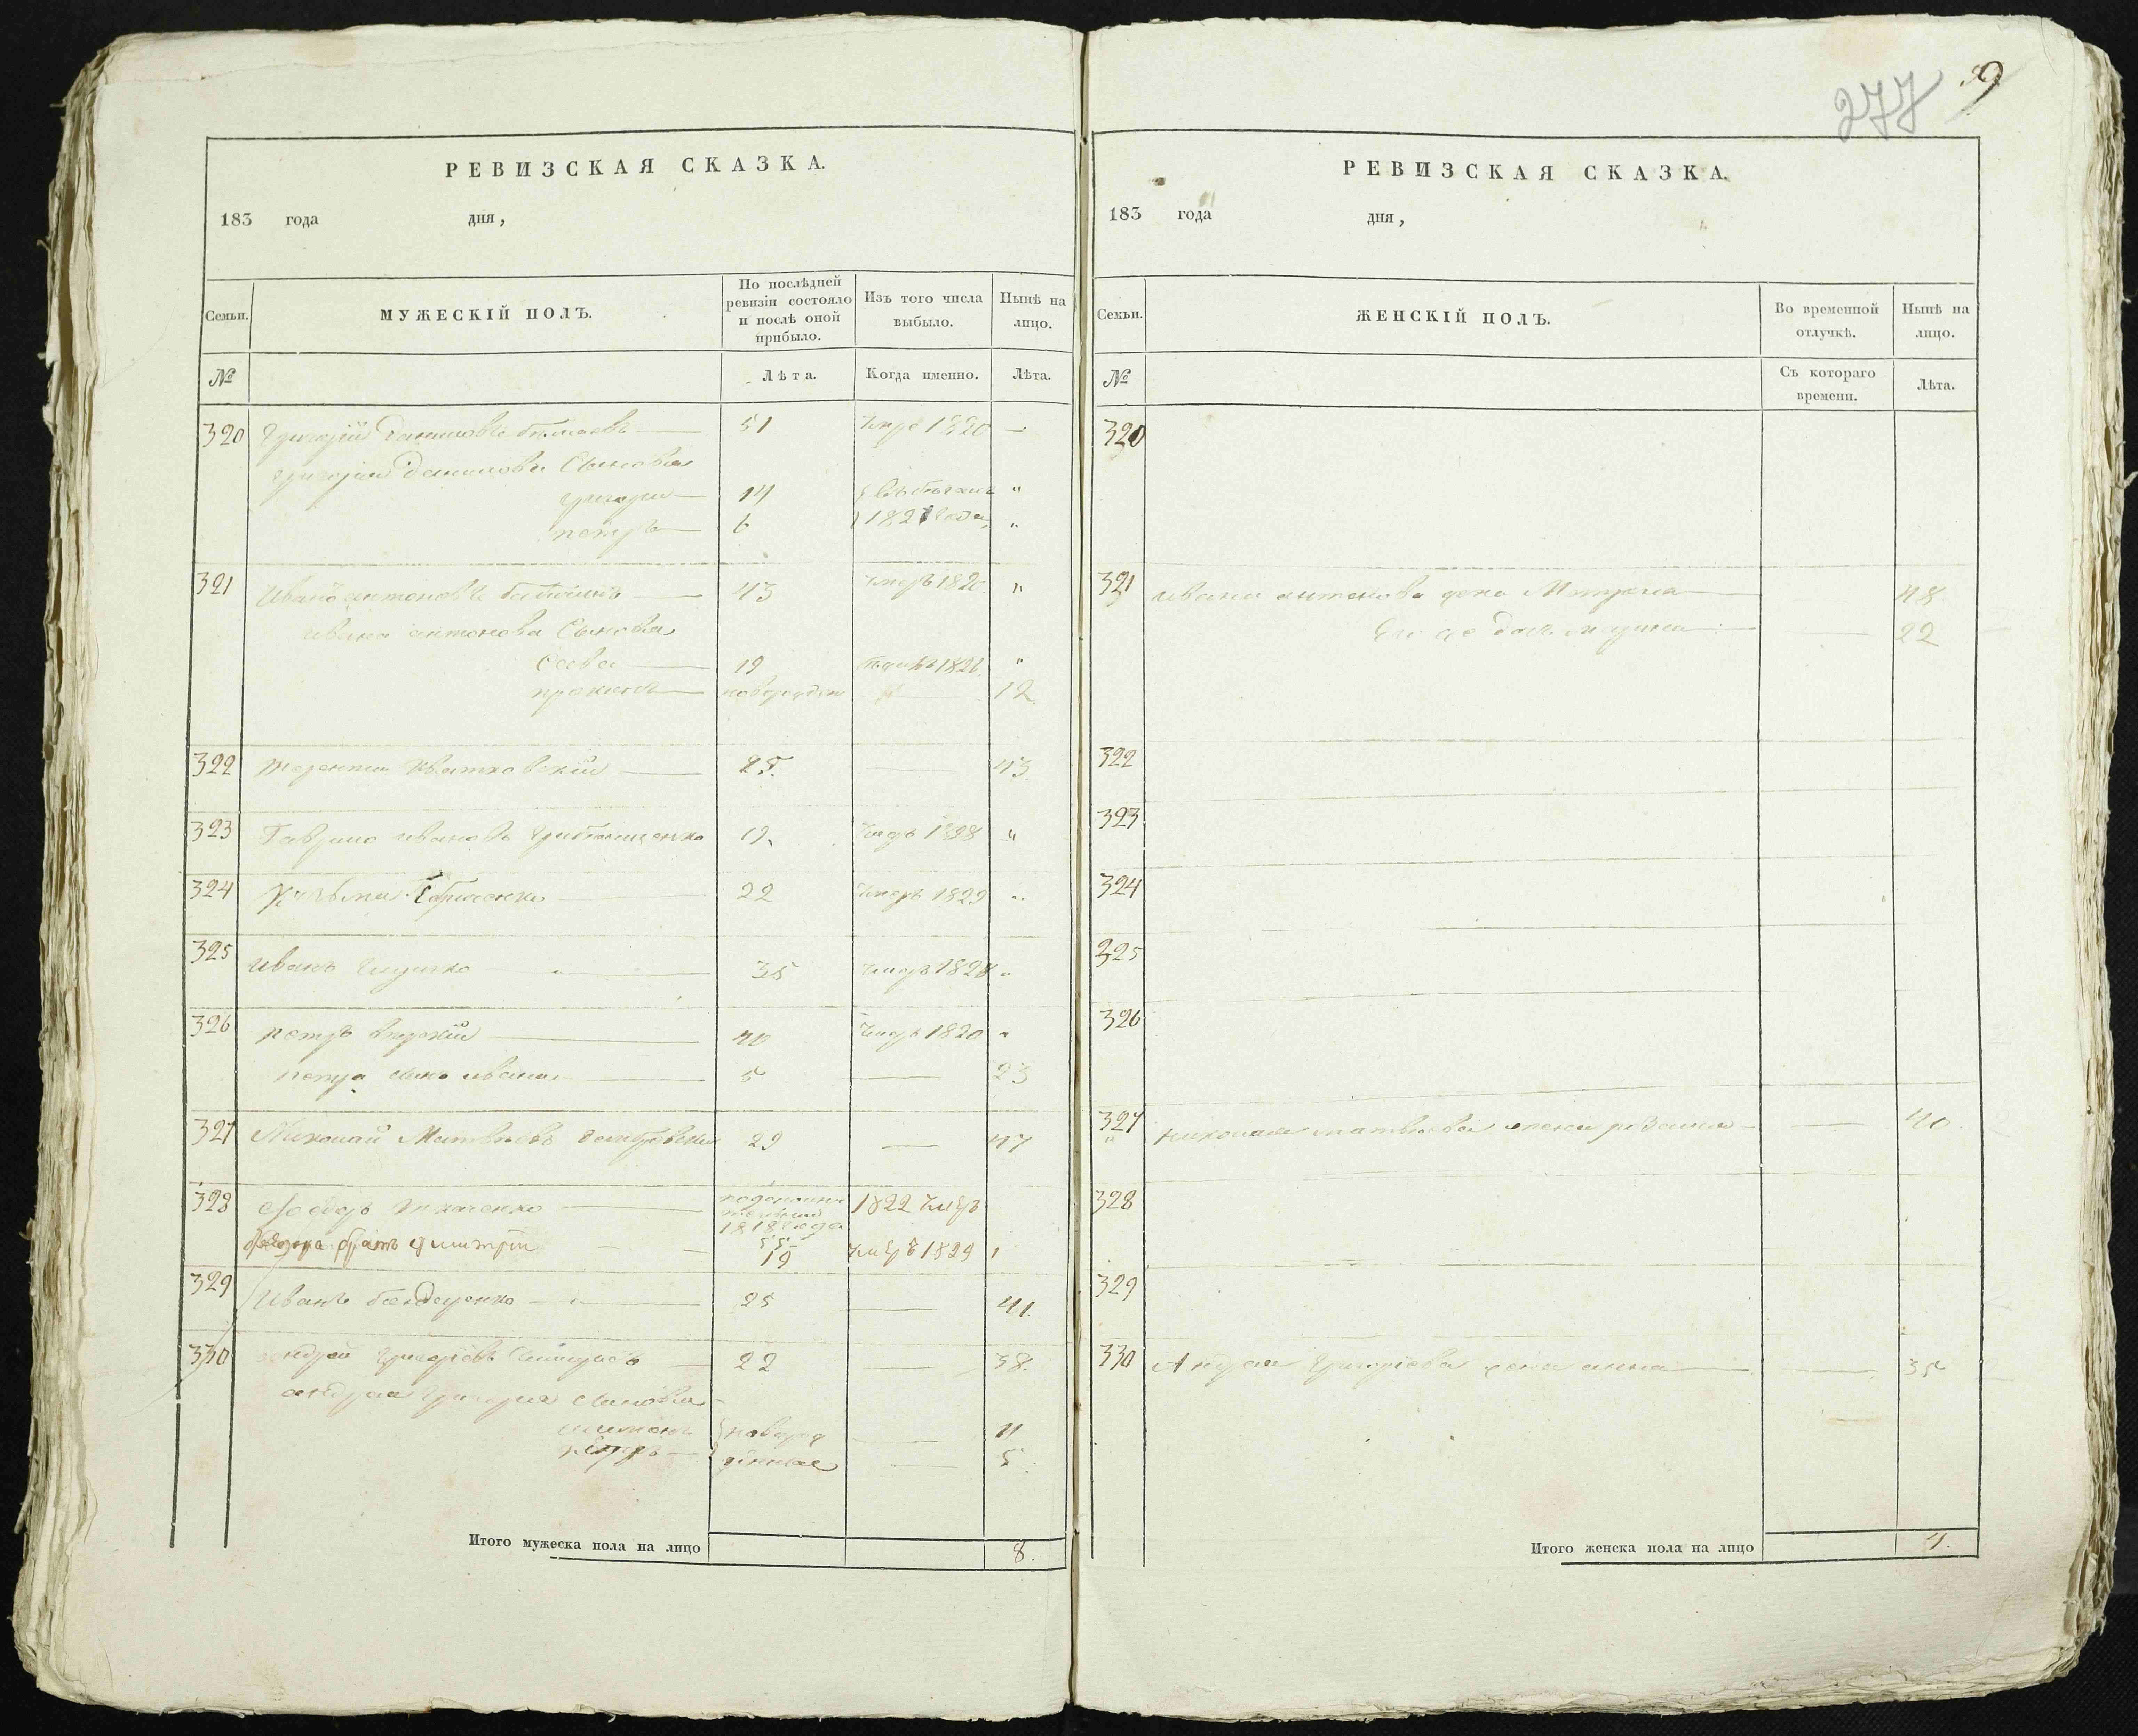 277 9
РЕВИЗСКАЯ СКАЗКА.
183 года дня,
Семьи. МУЖЕСКІЙ ПОЛЪ. По послѣдней ревизіи состояло и послѣ оной прибыло. Изъ того числа выбыло. Нынѣ на лицо.
№ Лѣта. Когда именно. Лѣта.
320 Григорій Даниловъ 51 1820 —
Григорія Данилова Сыновья
Григори 14 "
петръ 6 1821 года "
321 Иванъ антоновъ 43 умеръ 1820 "
ивана антонова Сыновья
Савва 19 1826 "
прокопъ новорожден 12
322 терентий Квятковскій 25. 43.
323 Гаврило ивановъ 19. умеръ 1828 "
324 Кузьма 22 умеръ 1829 "
325 иванъ 35 умеръ 1828 "
326 петръ 40 умеръ 1820 "
петра сынъ иванъ 5 23
327 Николай Матвѣевъ 29 — 47
328 Ѳеодоръ Ткаченко 1818 года 55 1822 умеръ
братъ димитрій 19 умеръ 1829
329 Иванъ бондаренко 25 41.
330 андрей Григорьевъ 22 38.
андрея Григорья сыновья
новорож 11
петръ денные 5.
Итого мужеска пола на лицо 8.
РЕВИЗСКАЯ СКАЗКА.
183 года дня,
Семьи. ЖЕНСКІЙ ПОЛЪ. Во временной отлучкѣ. Нынѣ на лицо.
№ Съ котораго времени. Лѣта.
320
321 ивана антонова жена Матрена 48
Его же дочь марина 22
322
323
324
325
326
327 николая матвѣева жена 40.
328
329
330 Андрея Григоріева жена анна 35
Итого женска пола на лицо 4.